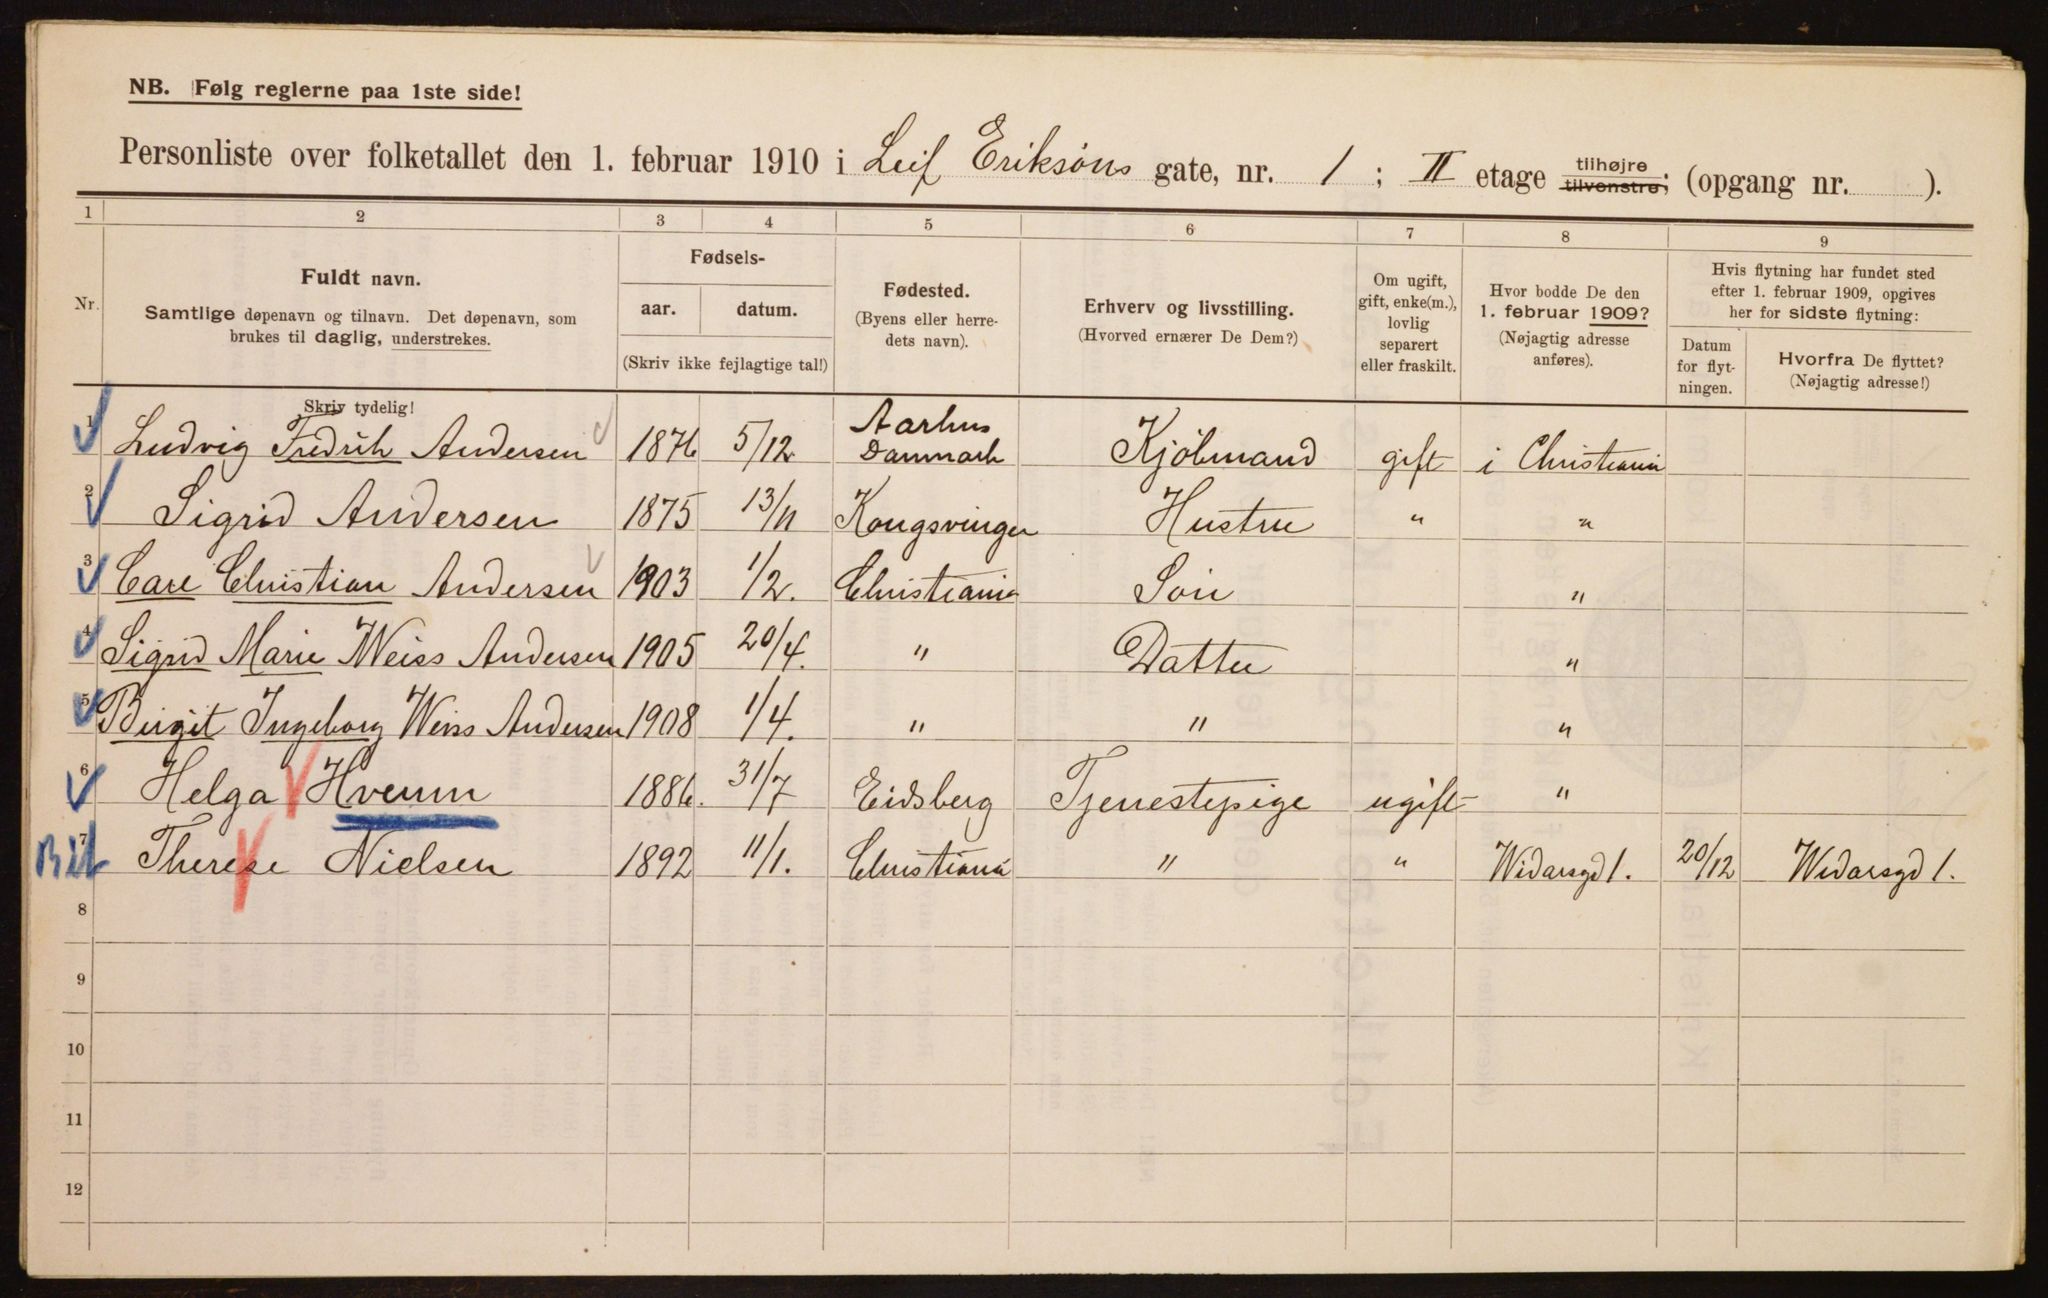 NB. Følg reglerne paa 1ste side!
Personliste over folketallet den 1. februar 1910 i Leif Eriksöns gate, nr. 1 ; II etage tilhøjre tilvenstre; (opgang nr. ).
1 2 3 4 5 6 7 8 9
Nr.
Fuldt navn.
Samtlige døpenavn og tilnavn. Det døpenavn, som
brukes til daglig, understrekes.
Skriv tydelig!
Fødsels-
aar. datum.
(Skriv ikke fejlagtige tal!)
Fødested.
(Byens eller herre-
dets navn).
Erhverv og livsstilling.
(Hvorved ernærer De Dem?)
Om ugift,
gift, enke(m.),
lovlig
separert
eller fraskilt.
Hvor bodde De den
1. februar 1909?
(Nøjagtig adresse
anføres).
Hvis flytning har fundet sted
efter 1. februar 1909, opgives
her for sidste flytning:
Datum
for flyt-
ningen.
Hvorfra De flyttet?
(Nøjagtig adresse!)
1 Ludvig Fredrik Andersen 1876 5/12 Aarhus Danmark Kjöbmand gift i Christiania
2 Sigrid Andersen 1875 13/11 Kongsvinger Hustru " "
3 Care Christian Andersen 1903 1/2. Christiania Sön "
4 Sigrid Marie Weiss Andersen 1905 20/4. " Datter "
5 Birgit Ingeborg Weiss Andersen 1908 1/4. " " "
6 Helga Hvenn 1886. 31/7 Eidsberg Tjenestepige ugift "
Bil 7 Therese Nielsen 1892 11/1. Christiania " " Widarsgd 1. 20/12 Widarsgd 1.
8
9
10
11
12